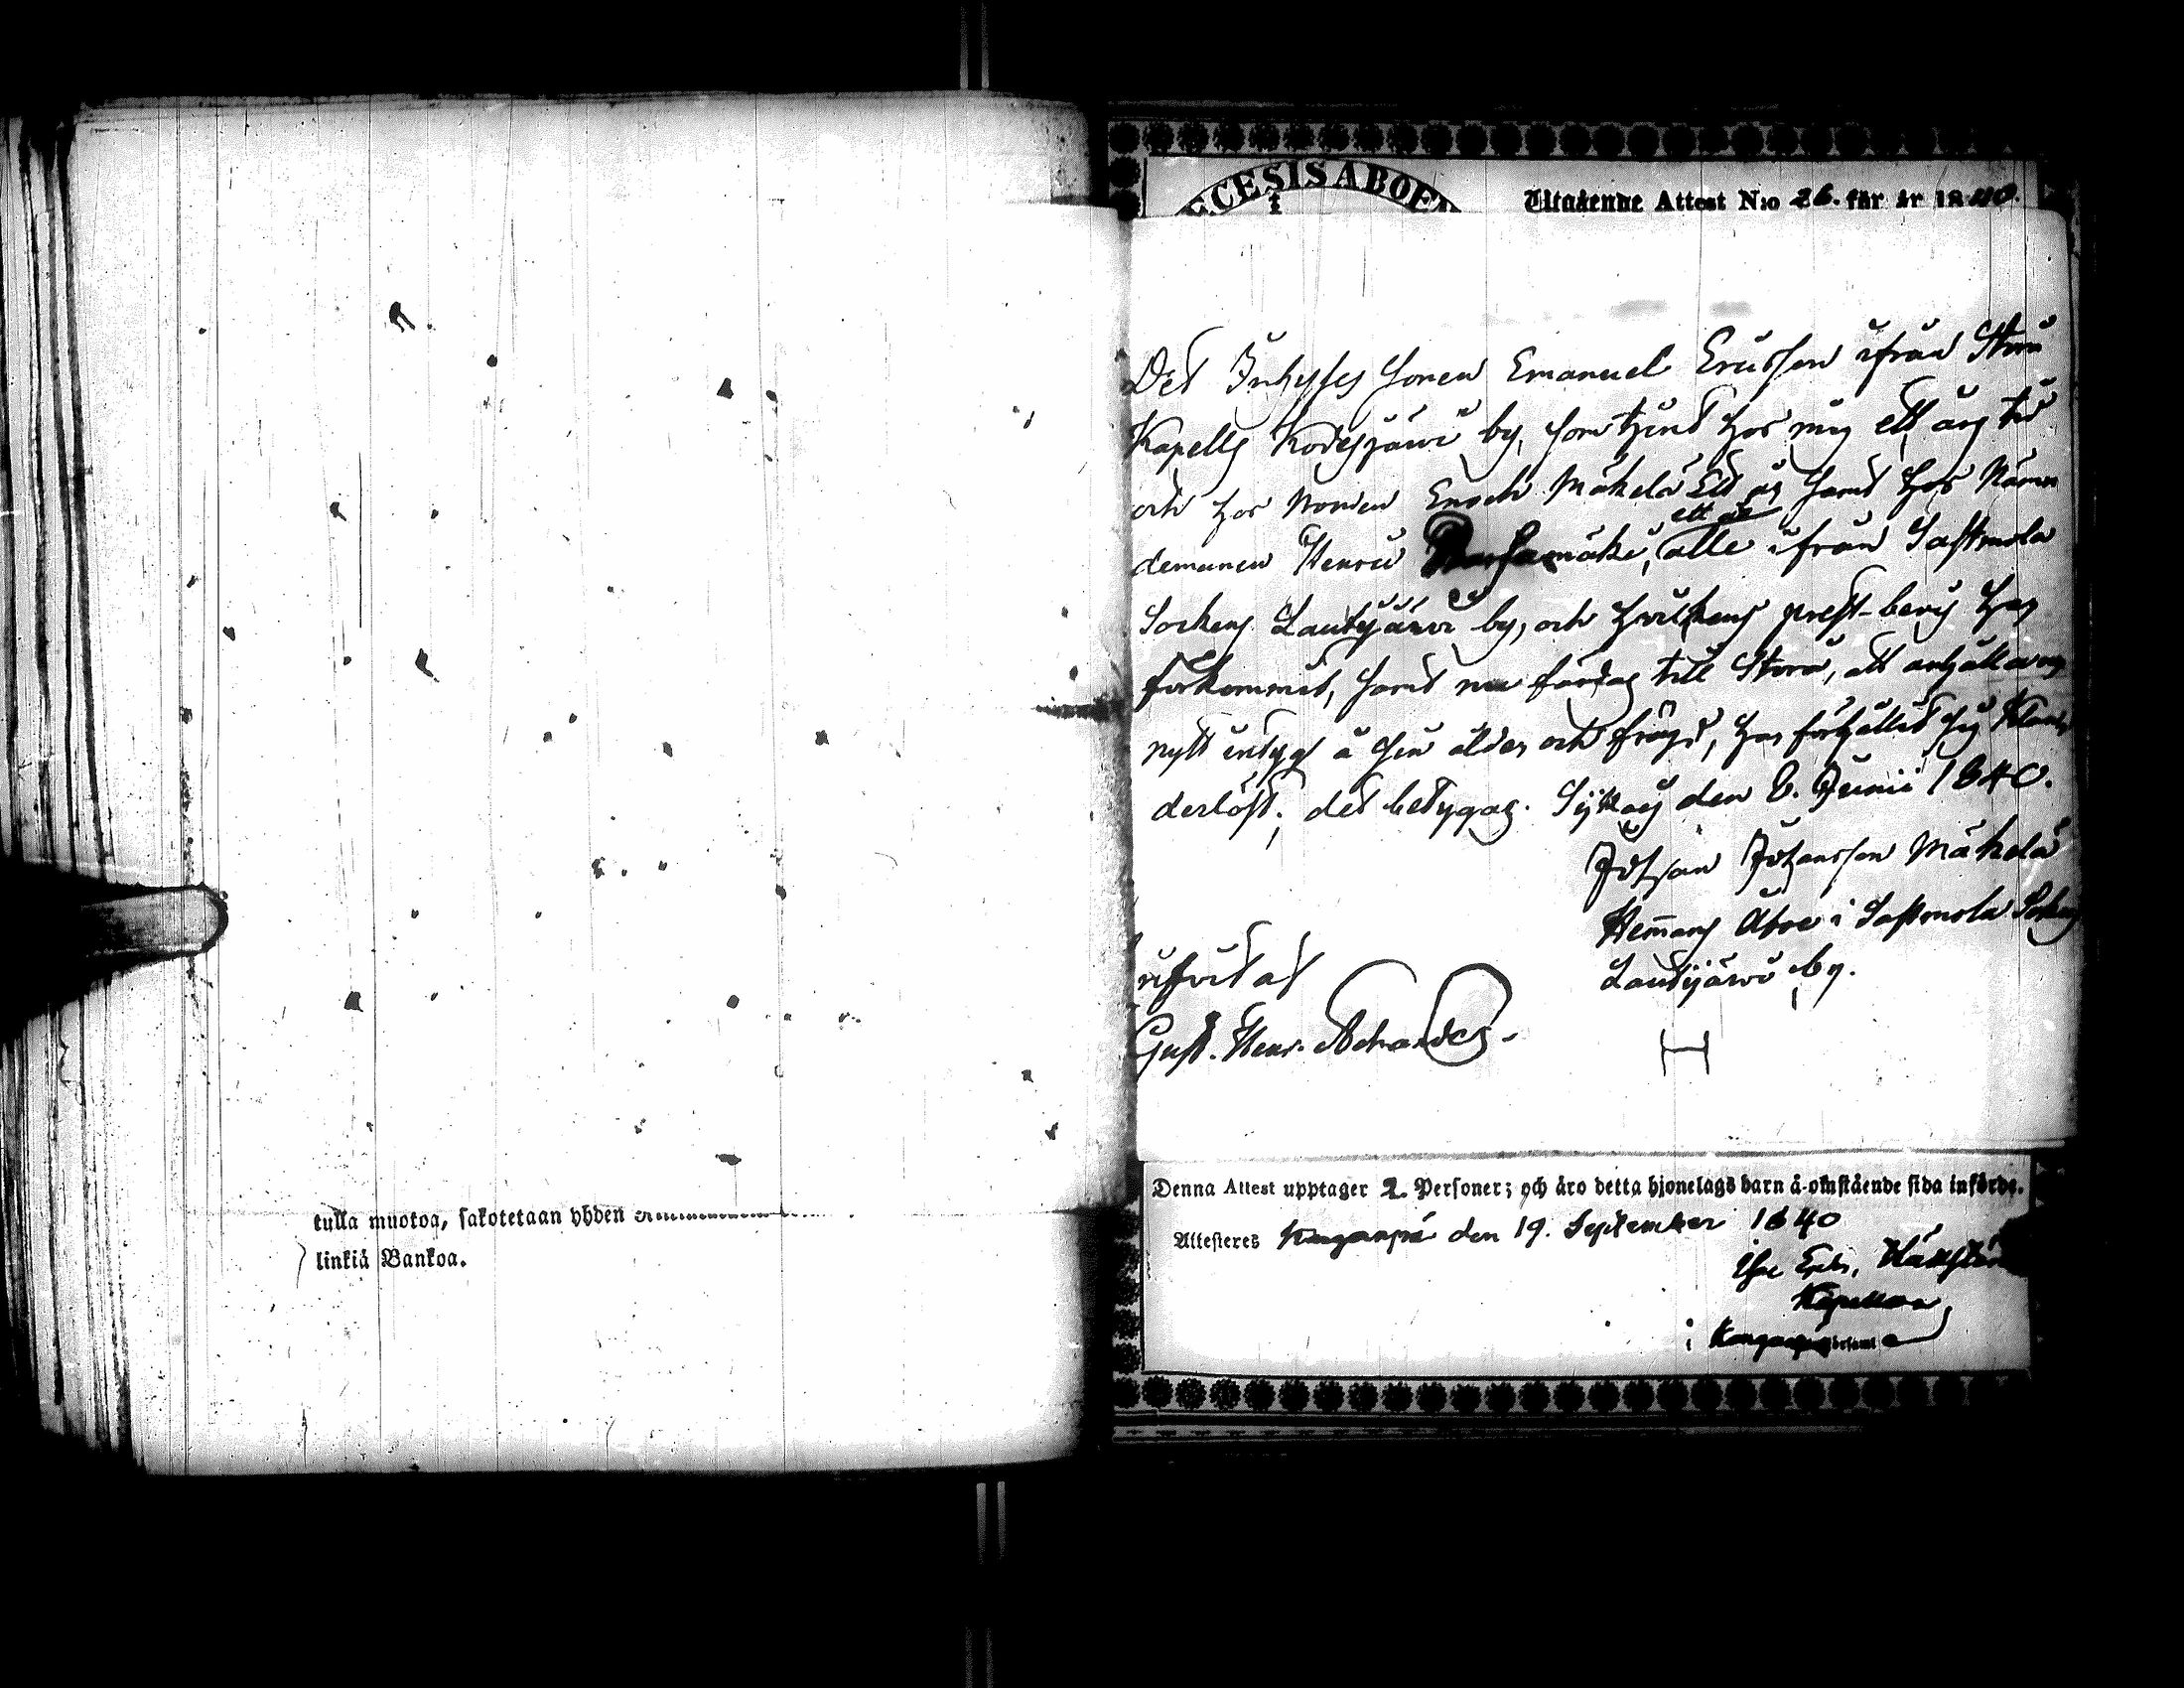 tulla muotoa, sakotetaan yhden
linkiä Bankoa.
ECESIS ABOEN
Utgående Attest N:o 26. för år 1840.
Det Inhyses Sonen Emanuel Ericsson ifrån Storå
Kapells Kodesjärvi by, som tjent hos mig ett års tid
och hos Enoch Mäkelä Ett år samt hos Nämn
ett år
demannen Henric mäki, alle ifrån Sastmola
Sockens Lautjärvi by, och hvilkens prest-bevis har
förkommit, samt nu färdas till Storå, att anhålla om
nytt intyg å sin ålder och frägd, har förhållit sig klan
derlöst; det betygas. den 8. Junii 1840.
Johan Johansson Mäkelä
Hemans Åboe i Sastmola Sockens
Lautjärvi by.
Gust. Henr.
H
Denna Attest upptager 2. Personer; och äro detta hjonelags barn å omstående sida införde.
Attesteres Kangarpä den 19. September 1840
Kapellan
i